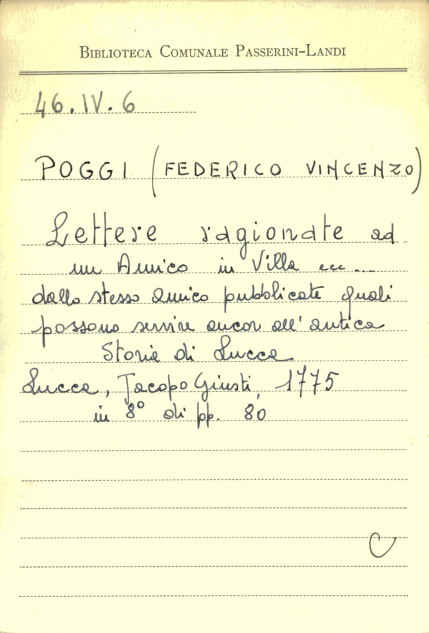 BIBLIOTECA COMUNALE PASSERINI-LANDI
46.IV.6
POGGI (FEDERICO VINCENZO)
Lettere ragionate ad
un Amico in Villa ec...
dallo stesso amico pubblicate quali
possono servire ancor all'antica
Storia di Lucca
Lucca, Jacopo Giusti, 1775
in 8° di pp. 80
C